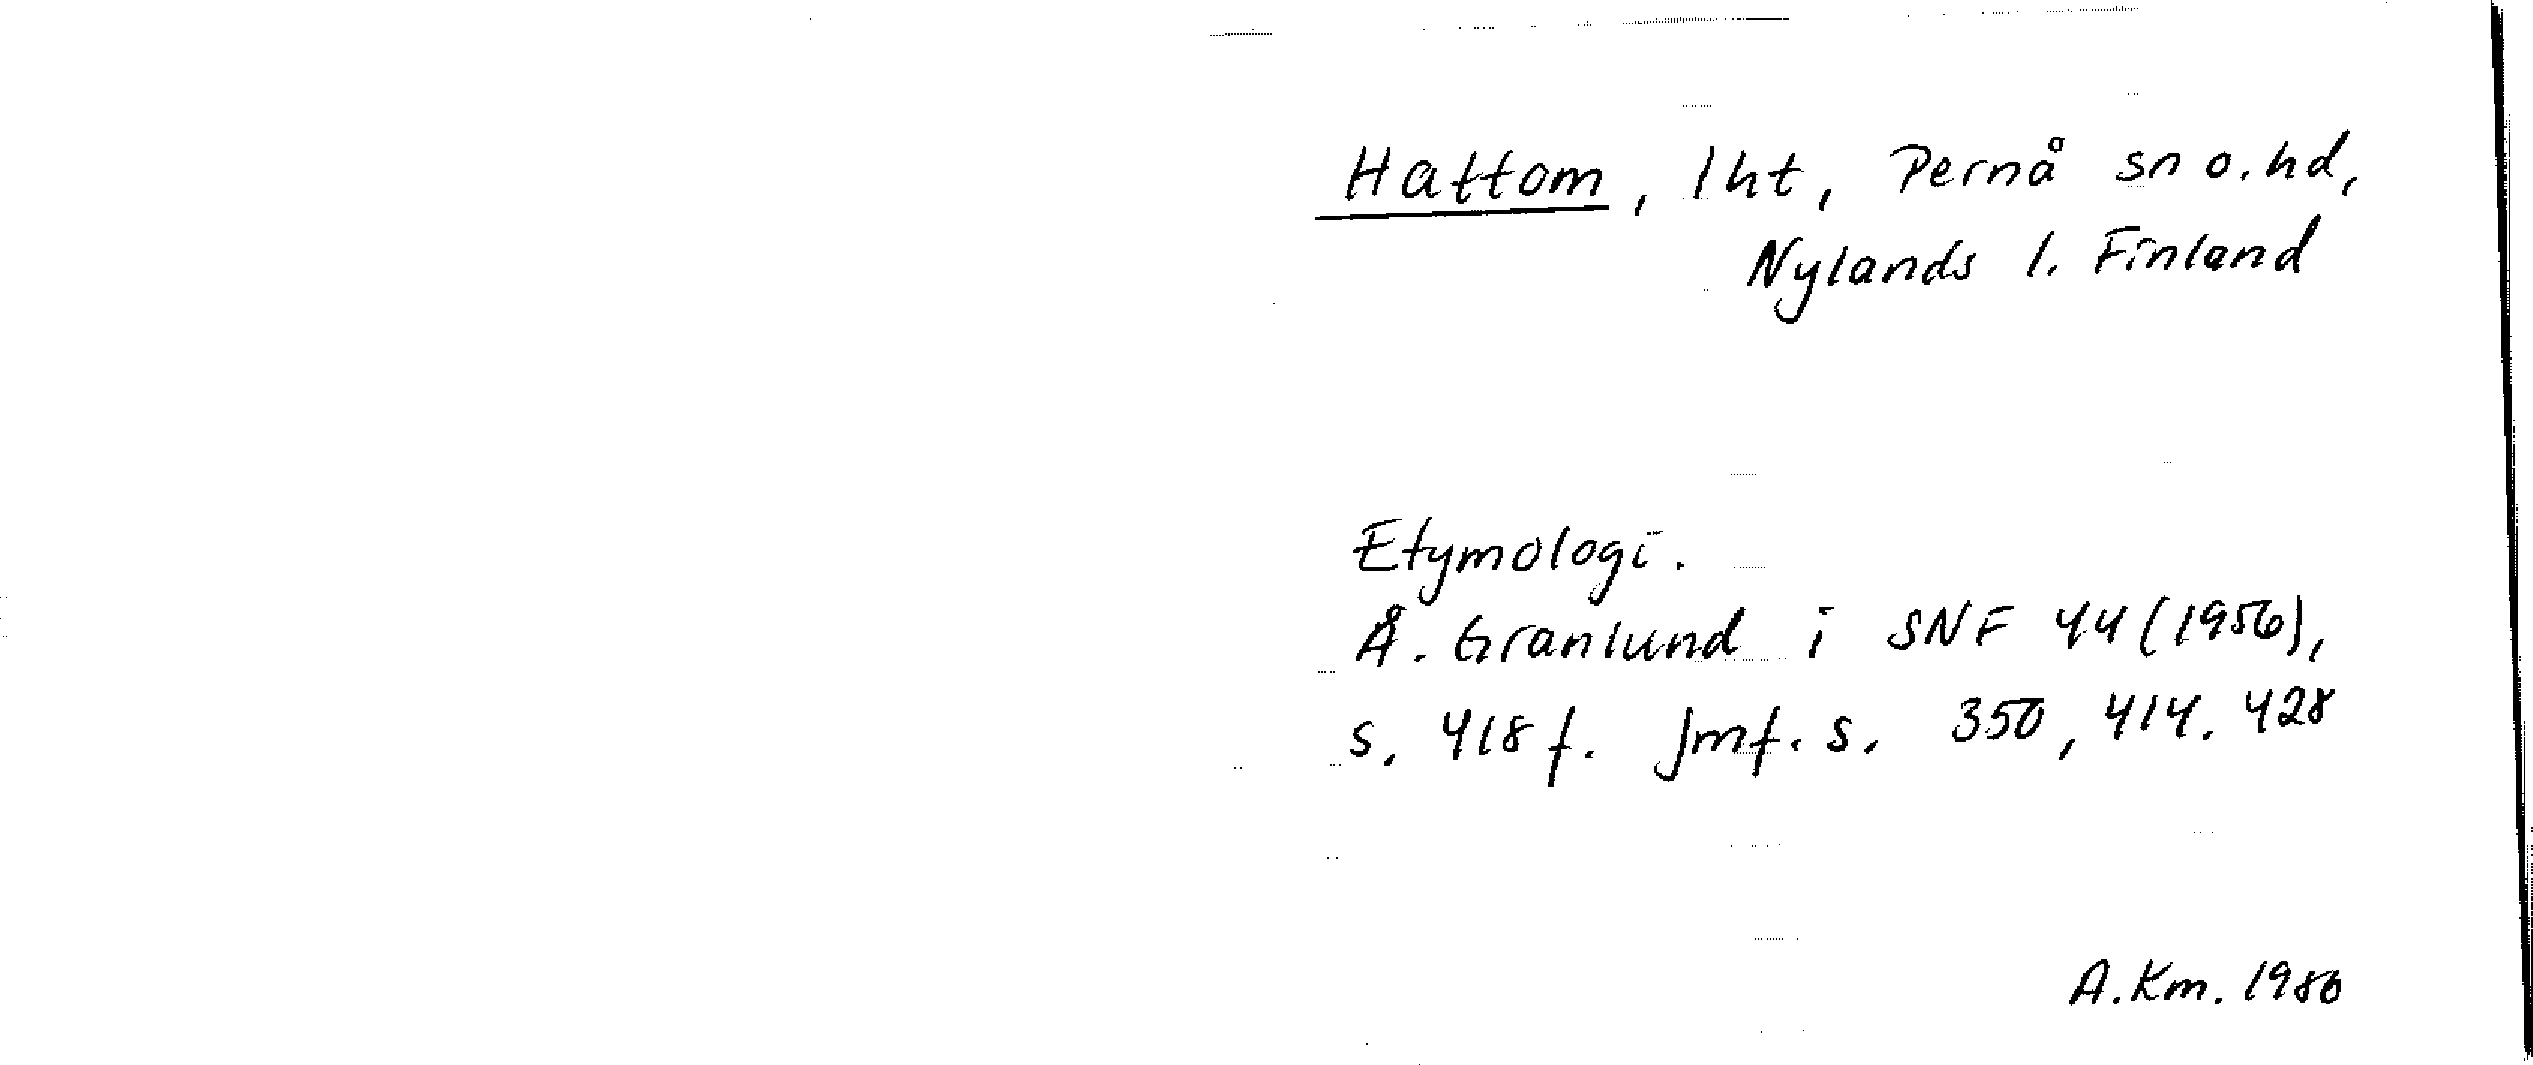 Hattom, lht, Pernå sn o. hd,
Nylands l. Finland
Etymologi.
Å. Granlund i SNF 44 (1956),
s. 418 f. Jmf. s. 350, 414. 428
A. Km. 1986